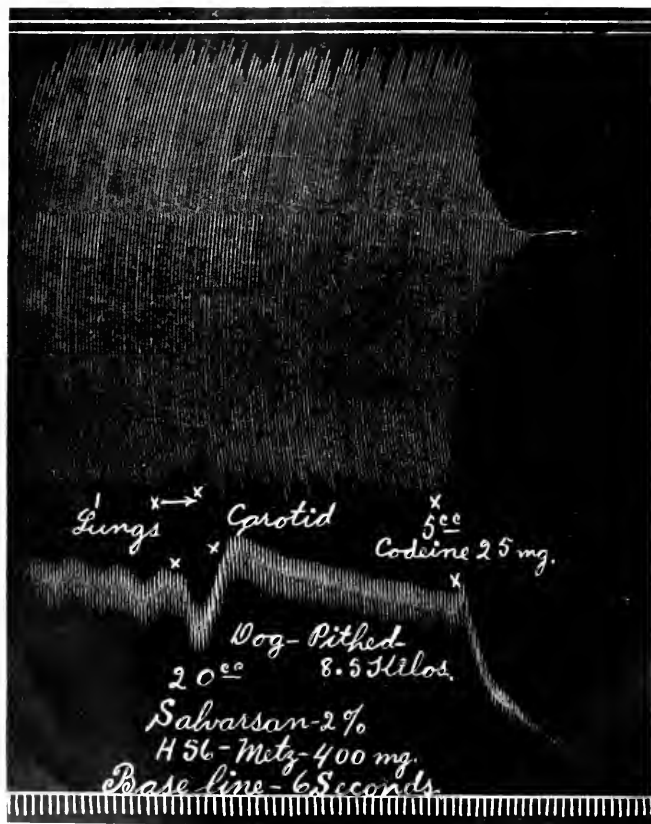 x→x
Lungs
Carotid
x
5cc
Codeine 25 mg.
x
x
x
Dog-Pithed-
8.5 Kilos.
20cc
Salvarsan-2%
H 56-Metz-400 mg.
Base line-6 Seconds.